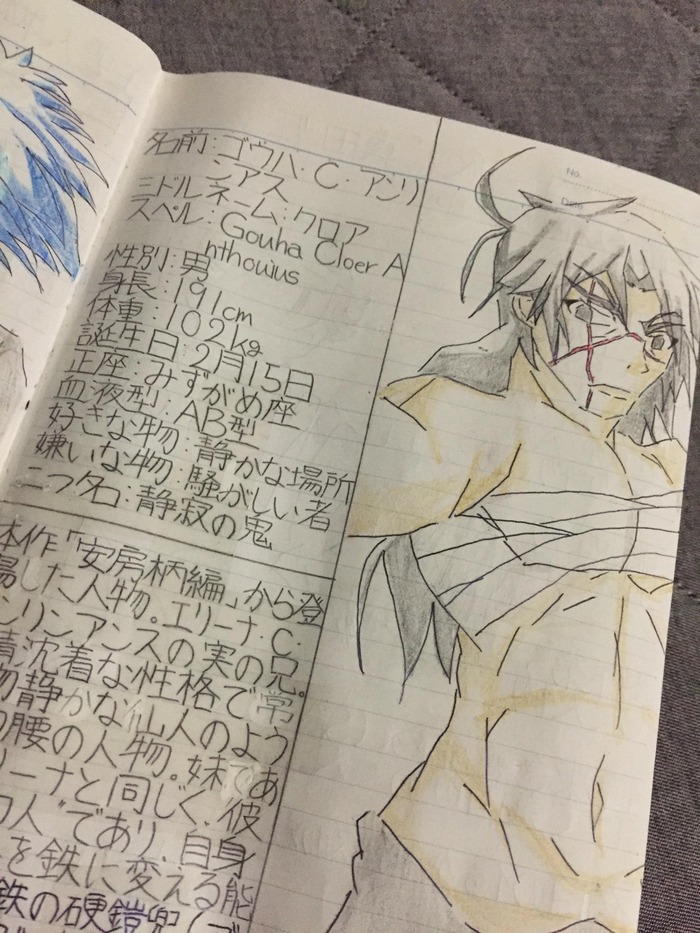 No.
Date
名前:ゴウハ・C・アンリ
ンアス
ミドルネーム:クロア
スペル:Gouha Cloer A
nthowius
性別:男
身長:191cm
体重:102kg
誕生日:2月15日
正座:みずがめ座
血液型:AB型
好きな物:静かな場所
嫌いな物:騒がしい者
二つ名:静寂の鬼
本作「安房柄編」から登
場した人物。エリーナ・C・
ンリンアンスの実の兄。
沈着な性格で常
静かな仙人のよう
腰の人物。妹であ
リーナと同じく、彼
人”であり、自身
を鉄に変える能
鉄の硬鎧兜